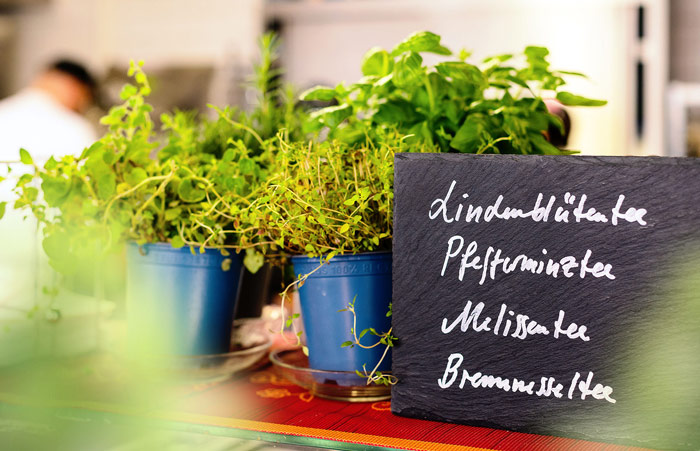 Lindenblütentee
Pfefferminztee
Melissentee
Brennnesseltee